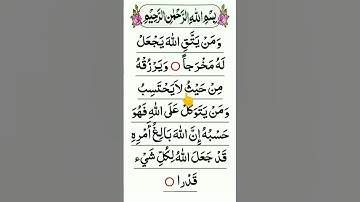 بِسْمِ اللهِ الرَّحْمٰنِ الرَّحِيْمِ
وَمَنْ يَتَّقِ اللهَ يَجْعَلْ
لَهُ مَخْرَجاً ○ وَيَرْزُقْهُ
مِنْ حَيْثُ لاَيَحْتَسِبُ
وَمَنْ يَتَوَكَّلْ عَلَى اللهِ فَهُوَ
حَسْبُهُ إِنَّ اللهَ بَالِغُ أَمْرِهِ
قَدْ جَعَلَ اللهُ لِكُلِّ شَيْء
قَدْرا ○